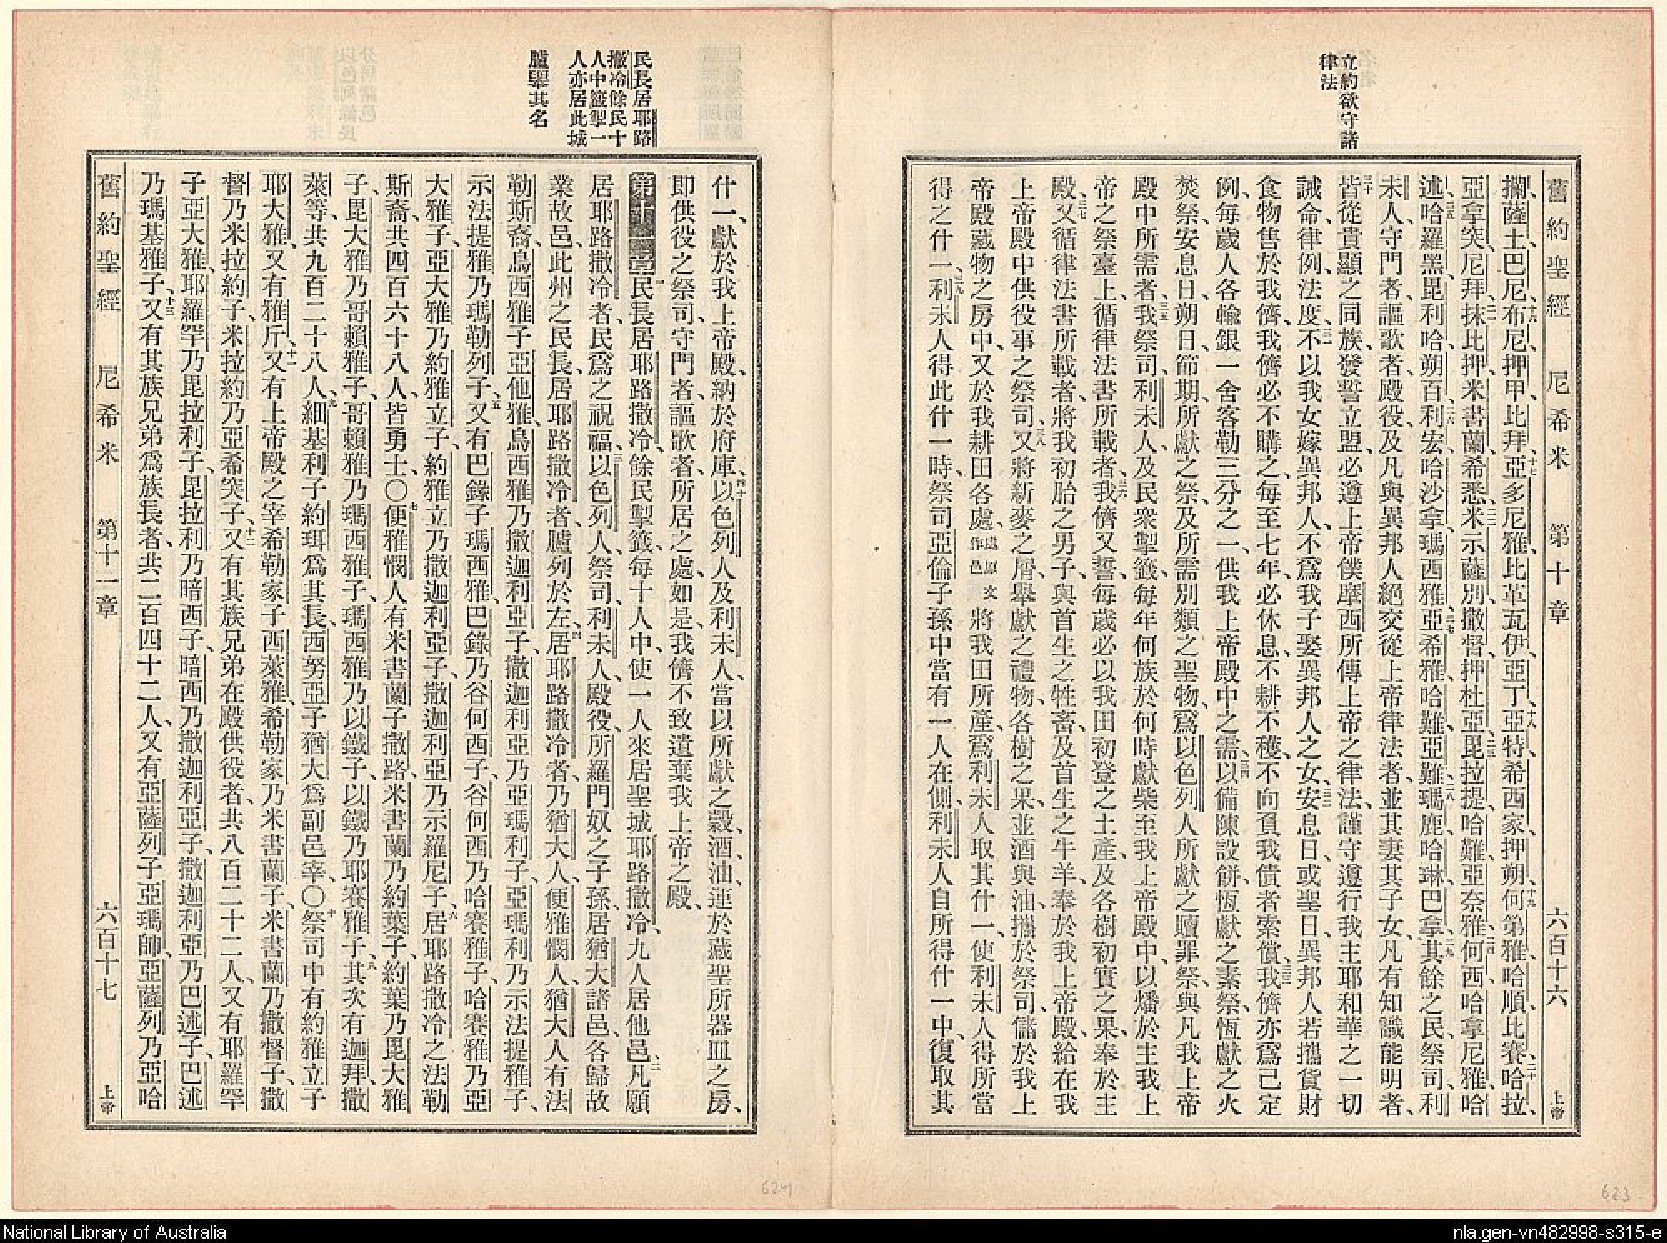 立約欲守諸
律法
舊約聖經 尼希米 第十章 六百十六 上帝
攔薩土巴尼布尼押甲比拜亞多尼雅比革瓦伊亞丁亞特希西家押朔何第雅哈順比賽哈拉
亞拿突尼拜抹比押米書蘭希悉米示薩別撒督押杜亞毘拉提哈難亞奈雅何西哈拿尼雅哈
述哈羅黑毘利哈朔百利宏哈沙拿瑪西雅亞希雅哈難亞難瑪鹿哈琳巴拿其餘之民祭司利
未人守門者謳歌者殿役及凡與異邦人絕交從上帝律法者並其妻其子女凡有知識能明者
皆從貴顯之同族發誓立盟必遵上帝僕摩西所傳上帝之律法謹守遵行我主耶和華之一切
誡命律例法度不以我女嫁異邦人不為我子娶異邦人之女安息日或聖日異邦人若攜貨財
食物售於我儕我儕必不購之每至七年必休息不耕不穫不向負我債者索償我儕亦為己定
例每歲人各輸銀一舍客勒三分之一供我上帝殿中之需以備陳設餅恆獻之素祭恆獻之火
焚祭安息日朔日節期所獻之祭及所需別類之聖物為以色列人所獻之贖罪祭與凡我上帝
殿中所需者我祭司利未人及民眾掣籤每年何族於何時獻柴至我上帝殿中以燔於主我上
帝之祭臺上循律法書所載者我儕又誓每歲必以我田初登之土產及各樹初實之果奉於主
殿又循律法書所載者將我初胎之男子與首生之牲畜及首生之牛羊奉於我上帝殿給在我
上帝殿中供役事之祭司又將新麥之屑舉獻之禮物各樹之果並酒與油攜於祭司儲於我上
帝殿藏物之房中又於我耕田各處處原文作邑將我田所產為利未人取其什一使利未人得所當
得之什一利未人得此什一時祭司亞倫子孫中當有一人在側利未人自所得什一中復取其
民長居耶路
撒冷餘民十
人中籤掣一
人亦居此城
臚舉其名
什一獻於我上帝殿納於府庫以色列人及利未人當以所獻之穀酒油運於藏聖所器皿之房
即供役之祭司守門者謳歌者所居之處如是我儕不致遺棄我上帝之殿
第十一章民長居耶路撒冷餘民掣籤每十人中使一人來居聖城耶路撒冷九人居他邑凡願
居耶路撒冷者民為之祝福以色列人祭司利未人殿役所羅門奴之子孫居猶大諸邑各歸故
業故邑此州之民長居耶路撒冷者臚列於左居耶路撒冷者乃猶大人便雅憫人猶大人有法
勒斯裔烏西雅子亞他雅烏西雅乃撒迦利亞子撒迦利亞乃亞瑪利子亞瑪利乃示法提雅子
示法提雅乃瑪勒列子又有巴錄子瑪西雅巴錄乃谷何西子谷何西乃哈賽雅子哈賽雅乃亞
大雅子亞大雅乃約雅立子約雅立乃撒迦利亞子撒迦利亞乃示羅尼子居耶路撒冷之法勒
斯裔共四百六十八人皆勇士○便雅憫人有米書蘭子撒路米書蘭乃約葉子約葉乃毘大雅
子毘大雅乃哥賴雅子哥賴雅乃瑪西雅子瑪西雅乃以鐵子以鐵乃耶賽雅子其次有迦拜撒
萊等共九百二十八人細基利子約珥為其長西努亞子猶大為副邑宰○祭司中有約雅立子
耶大雅又有雅斤又有上帝殿之宰希勒家子西萊雅希勒家乃米書蘭子米書蘭乃撒督子撒
督乃米拉約子米拉約乃亞希突子又有其族兄弟在殿供役者共八百二十二人又有耶羅罕
子亞大雅耶羅罕乃毘拉利子毘拉利乃暗西子暗西乃撒迦利亞子撒迦利亞乃巴述子巴述
乃瑪基雅子又有其族兄弟為族長者共二百四十二人又有亞薩列子亞瑪帥亞薩列乃亞哈
舊約聖經 尼希米 第十一章 六百十七 上帝
624
623
National Library of Australia
nla.gen-vn482998-s315-e